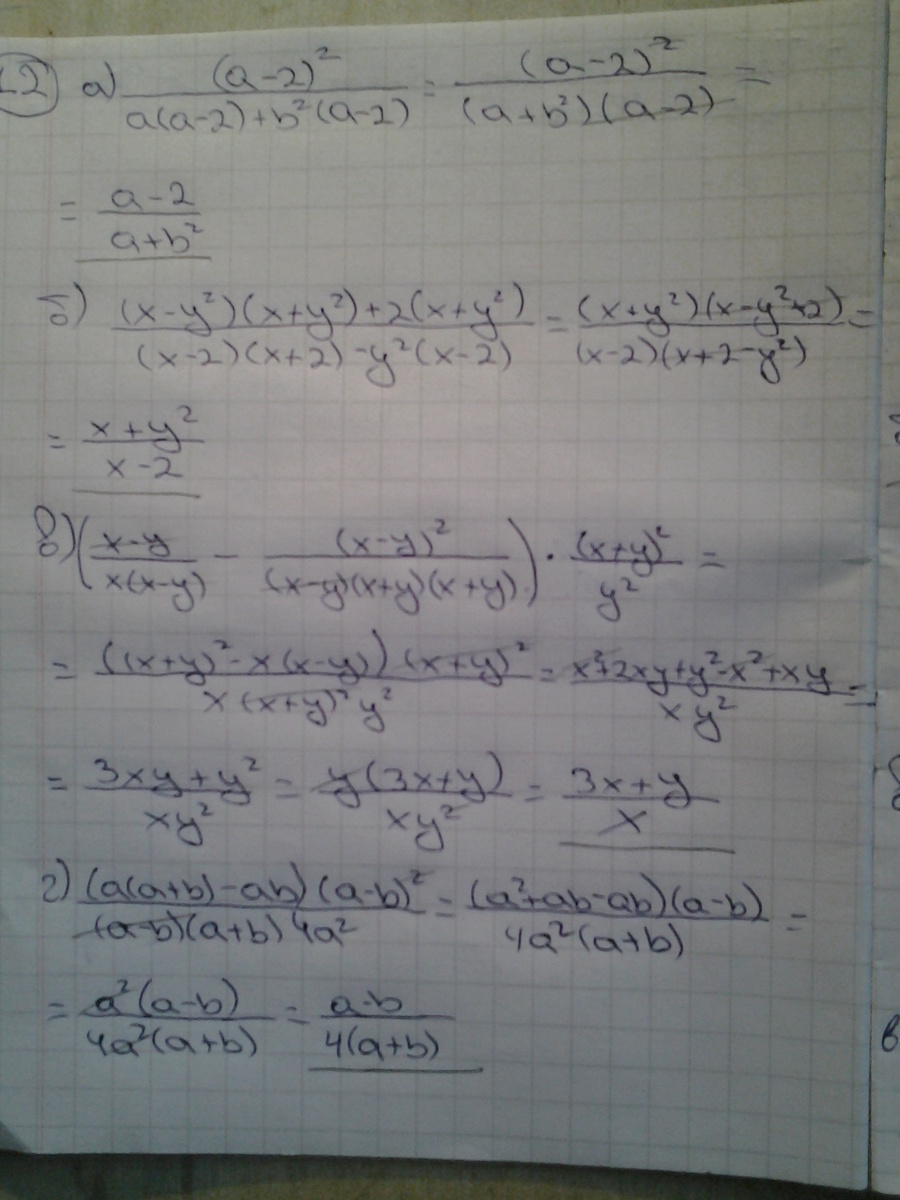 12 а) (a-2)²/(a(a-2)+b²(a-2)) = (a-2)²/((a+b²)(a-2)) =
= (a-2)/(a+b²)
б) ((x-y²)(x+y²)+2(x+y²))/((x-2)(x+2)-y²(x-2)) = ((x+y²)(x-y²+2))/((x-2)(x+2-y²)) =
= (x+y²)/(x-2)
в) ((x-y)/(x(x-y)) - (x-y)²/((x-y)(x+y)(x+y))) · (x+y)²/y² =
= (((x+y)²-x(x-y))(x+y)²)/(x(x+y)²y²) = (x²+2xy+y²-x²+xy)/(xy²) =
= (3xy+y²)/(xy²) = (y(3x+y))/(xy²) = (3x+y)/x
г) ((a(a+b)-ab)(a-b)²)/((a-b)(a+b)4a²) = ((a²+ab-ab)(a-b))/(4a²(a+b)) =
= (a²(a-b))/(4a²(a+b)) = (a-b)/(4(a+b))
в